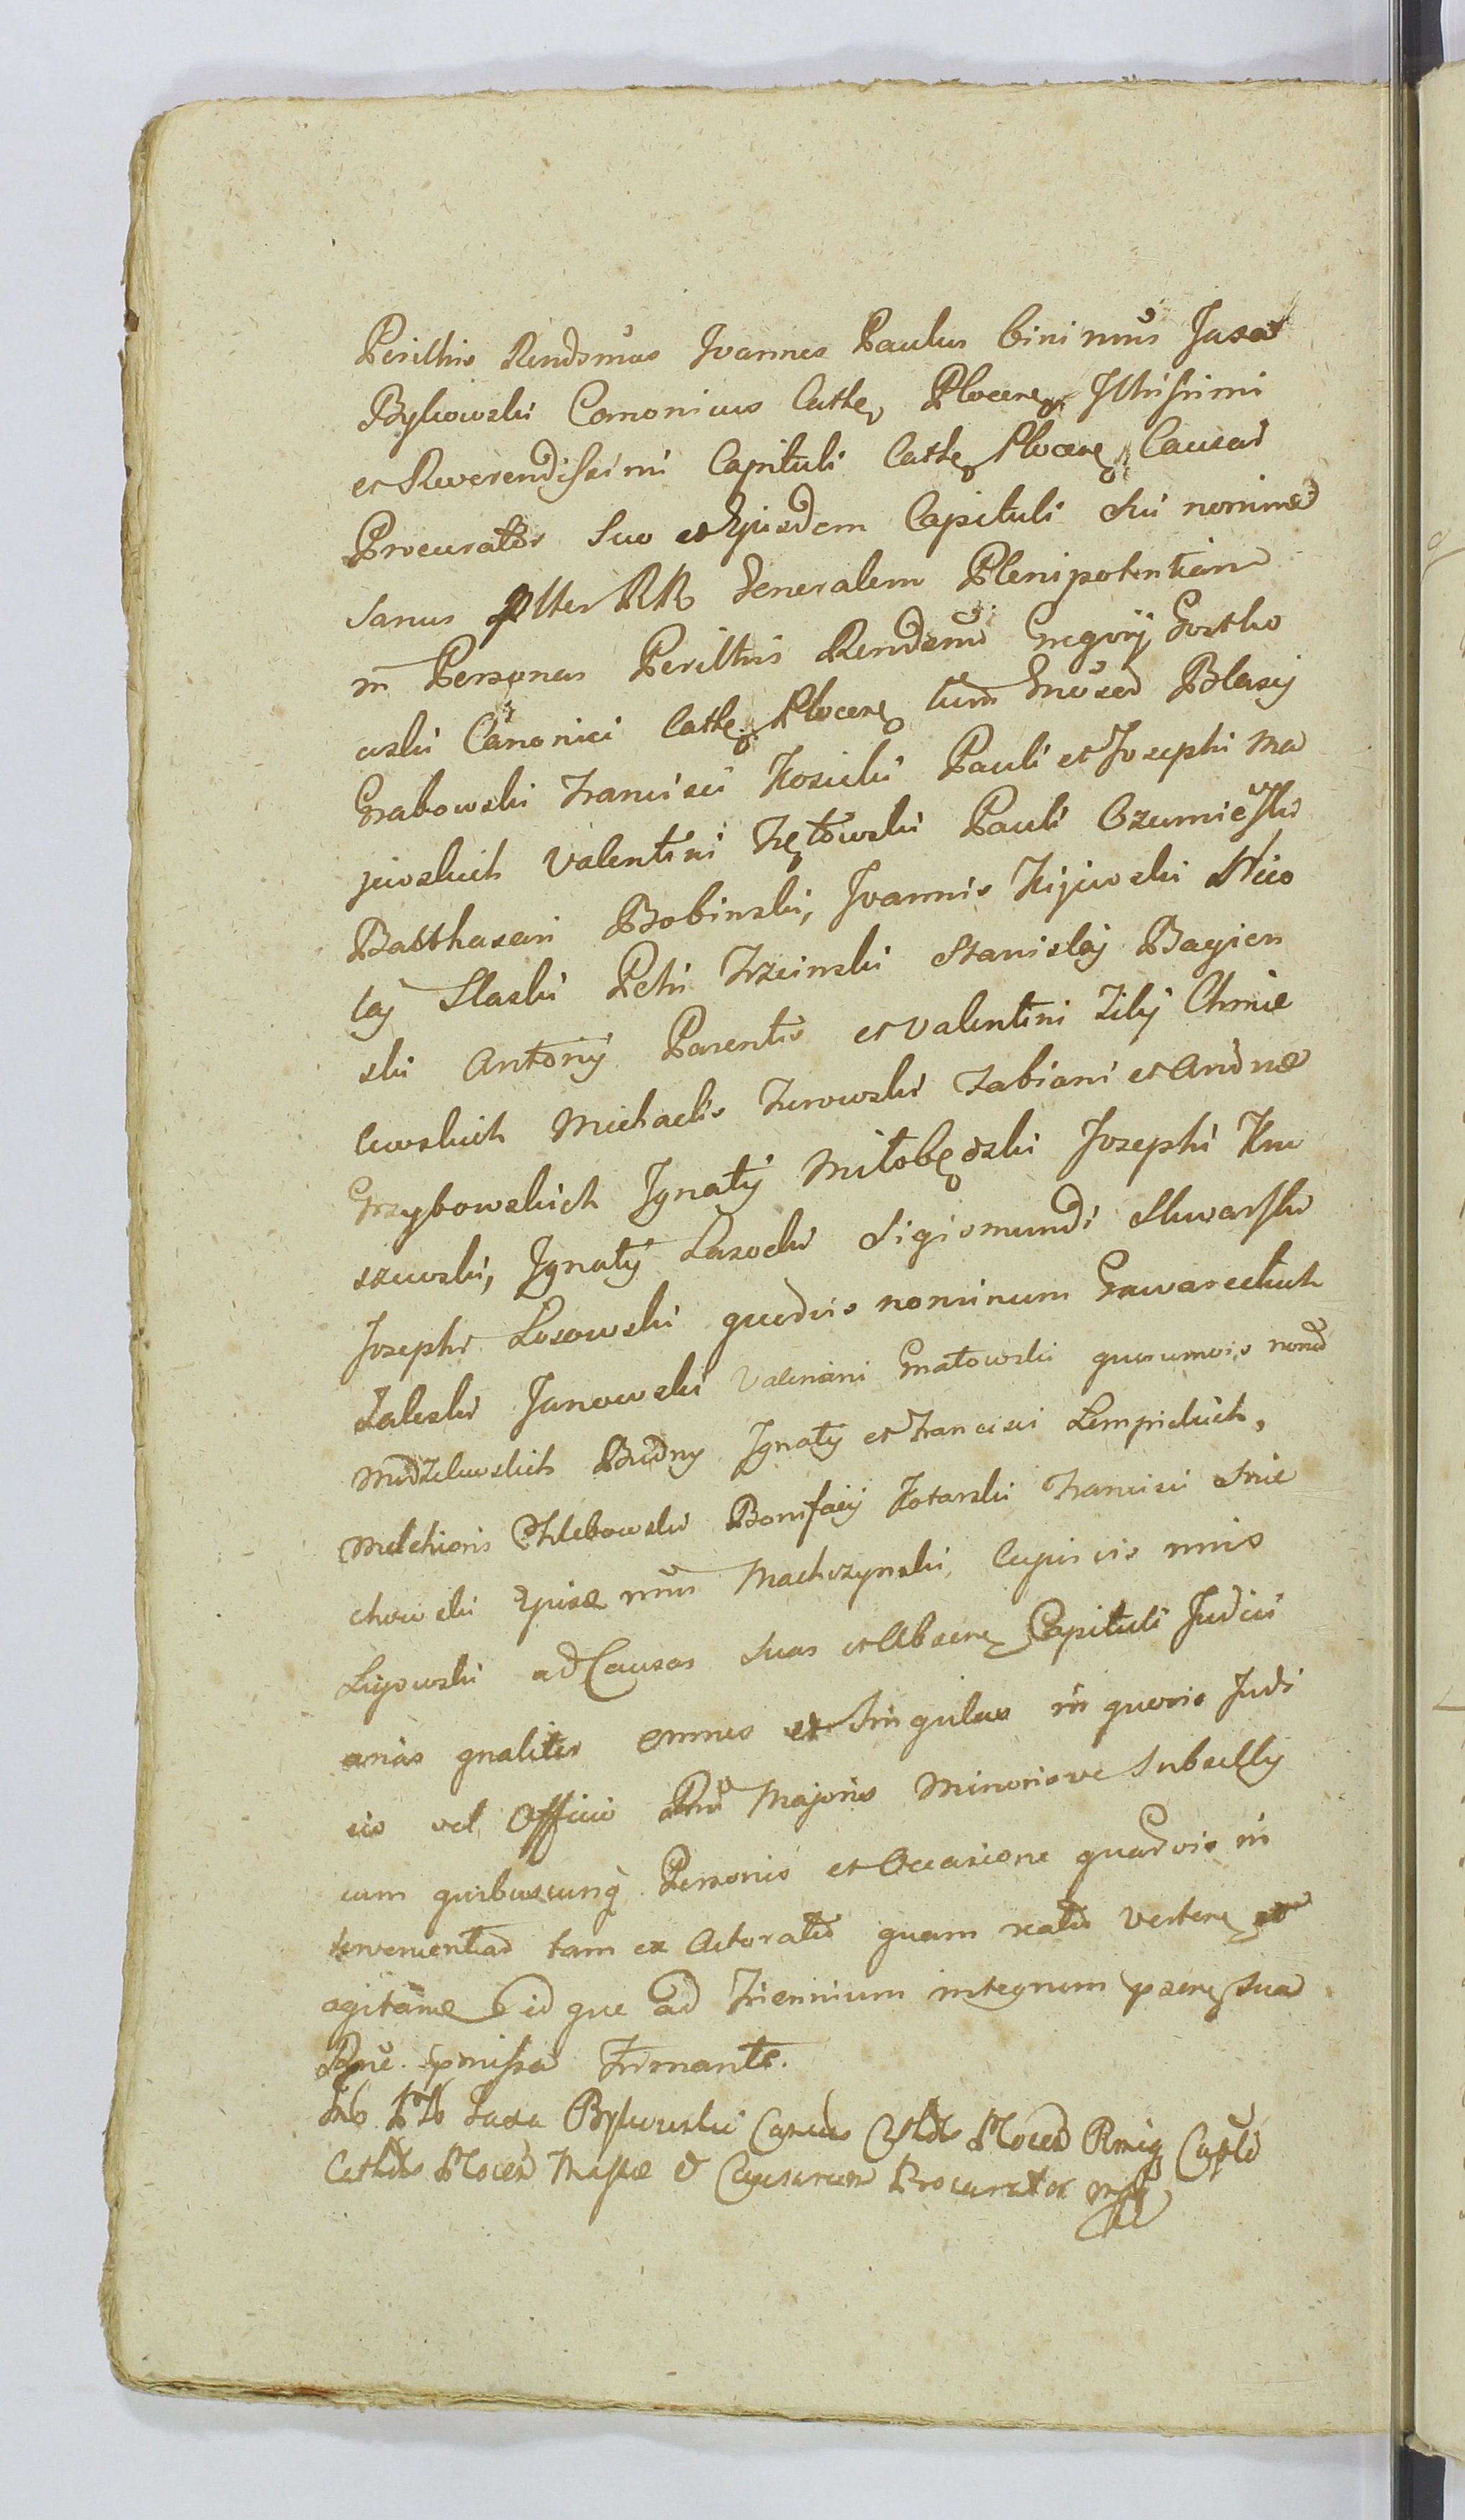 Perillris Rendsmus Joannes Paulus binimūs Jaxa
Bykowski Canonicus Cathe Plocens Illrissimi
et Reverendissimi Capituli Cathe Plocens Causar
Procurator Suo et Ejusdem Capituli sui nomine
Sanus Generalem Plenipotentiam
in Personas Perillris Rendsmi Gregorij Gostko
wski Canonici Cathe Plocens tum Gnosed Blasij
Grabowski Francisci Kosicki Pauli et Josephi Ma
jewskich Valentini Zętowski Pauli Ozumieski
Balthasari Bobinski, Joannis Kijewski Nico
laj Slaski Petri Trzcinski Stanislaj Bagien
ski Antonij Parentis et Valentini Filij Chmie
lewskich Michaelis Turowski Fabiani et Andreae
Grzybowskich Ignatij Miłobędzki Josephi Kru
szewski, Ignatij Lasocki Sigismundi Skwarski
Josephi Losowski quodvis nominum Gawareckich
Zaleski Janowski Valeriani Gnatowski quorumvis nomd
Modzelewskich Budny Ignatij et Francisci Lempickich,
Melchioris Chlebowski Bonifacij Kotarski Francisci Snie
chowski Machczynski, Cujusvis nnis
Ligowski ad Causas Suas et Absens Capituli Judici
arias gnaliter omnes et Singulas in quovis Judi
cio vel Officio Rni Majoris Minorisve Subsellij
cum quibuscunq Personis et Occasione quadvis in
tervenientiad tam ex Actoratu quam reatu Vertens et
agitame id que ad Triennium integrum psens Sua
pmissa Firmante.
Jaxa Bykowski Canus Cathdr Plocen Rmiq Capli
Cathdr Plocen Massae & Causarum Procurator mp